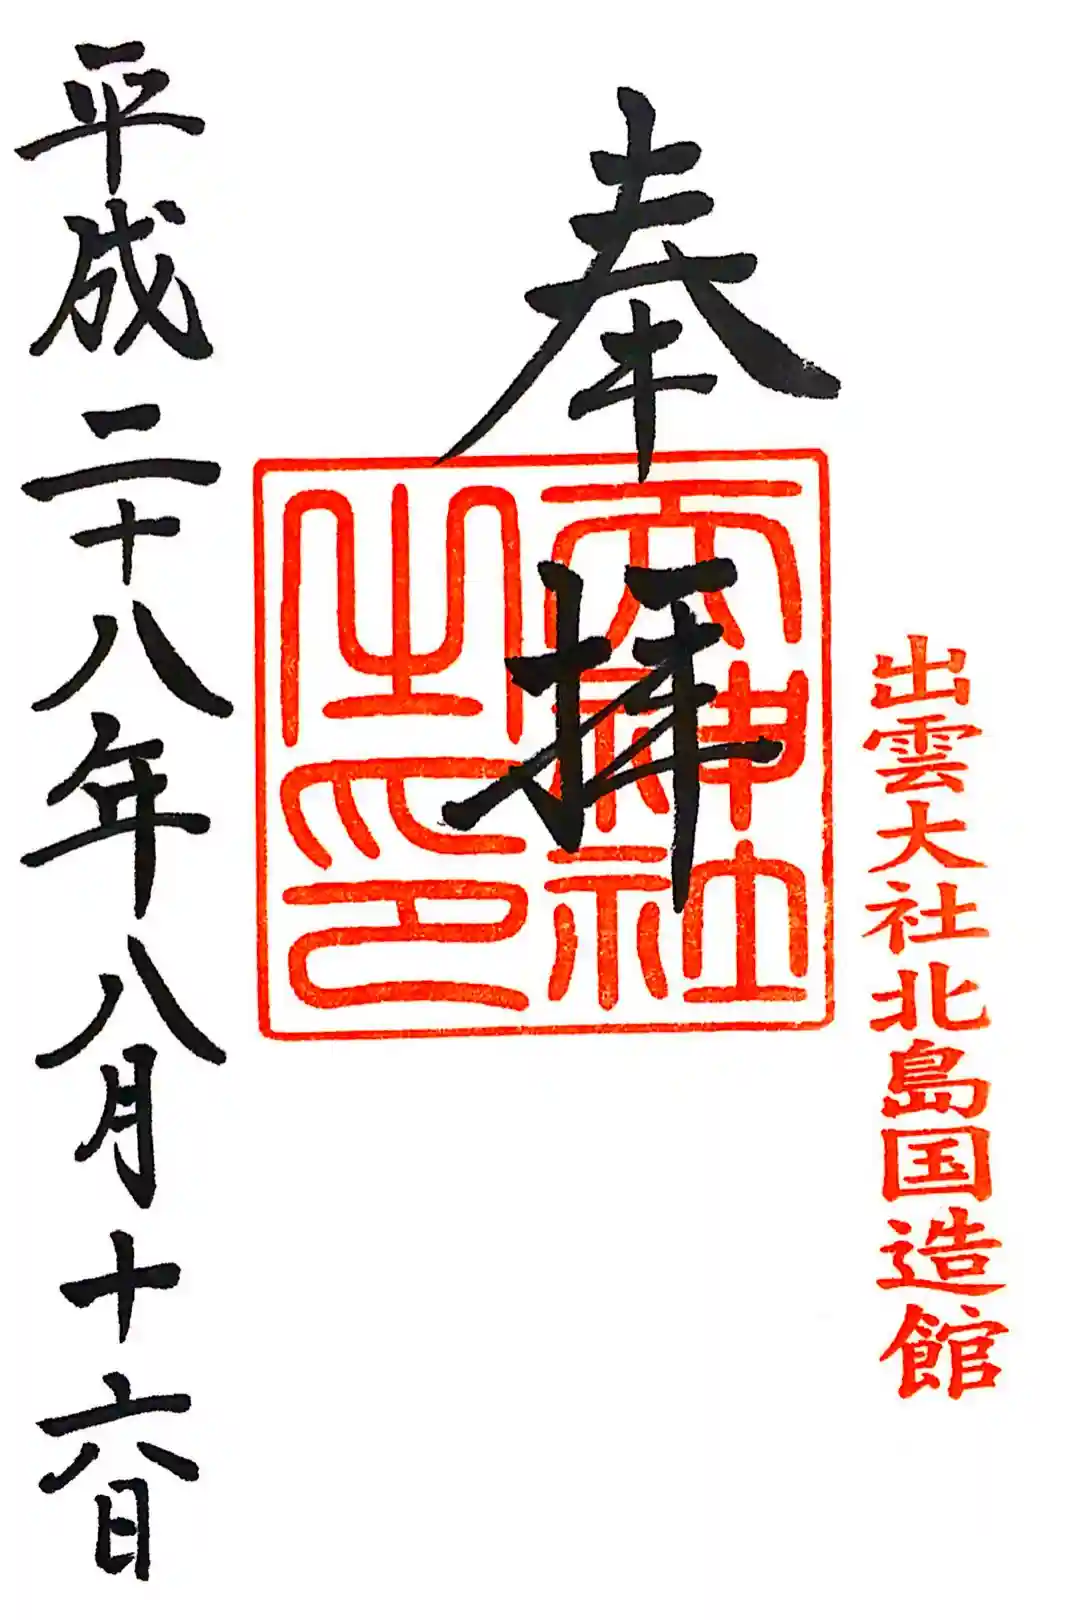 出雲大社北島国造館
奉拝
天神社
之印
平成二十八年八月十六日